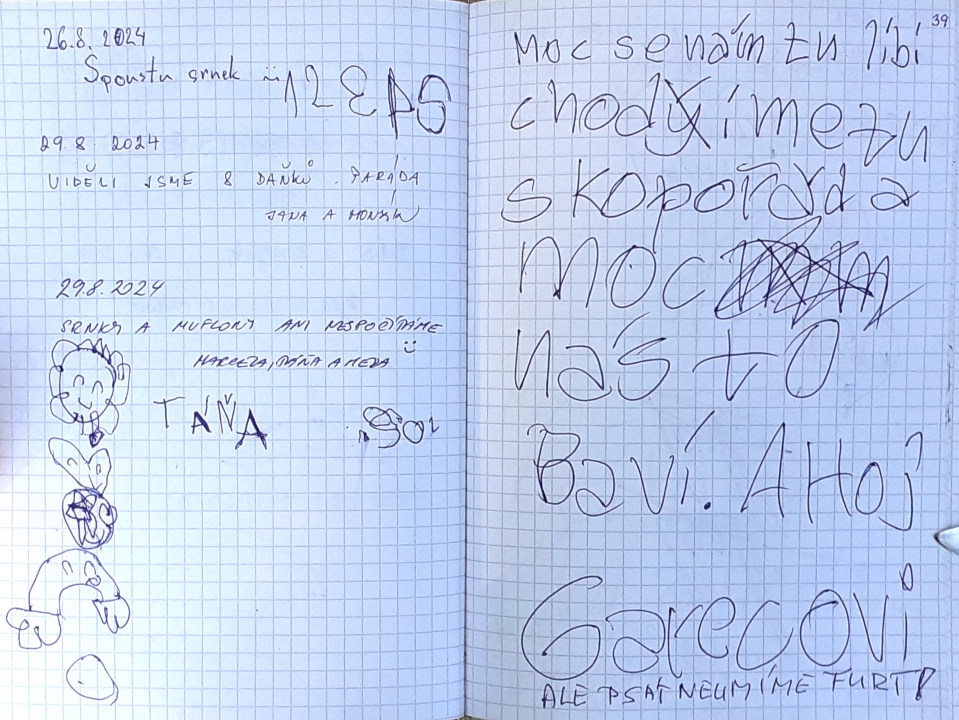 26.8. 2024
Spoustu srnek
29.8. 2024
VIDĚLI JSME 8 DAŇKŮ. PARÁDA
JANA A HONZÍK
29.8.2024
SRNKY A MUFLONY ANI NESPOČÍTÁME
MARCELA, TÁŇA A
TÁŇA
39
Moc se nám tu líbí
chodíme tu
skopořád a
moc
nás to
Baví. AHoj
Garecovi
ALE PSÁT NEUMÍME FURT!